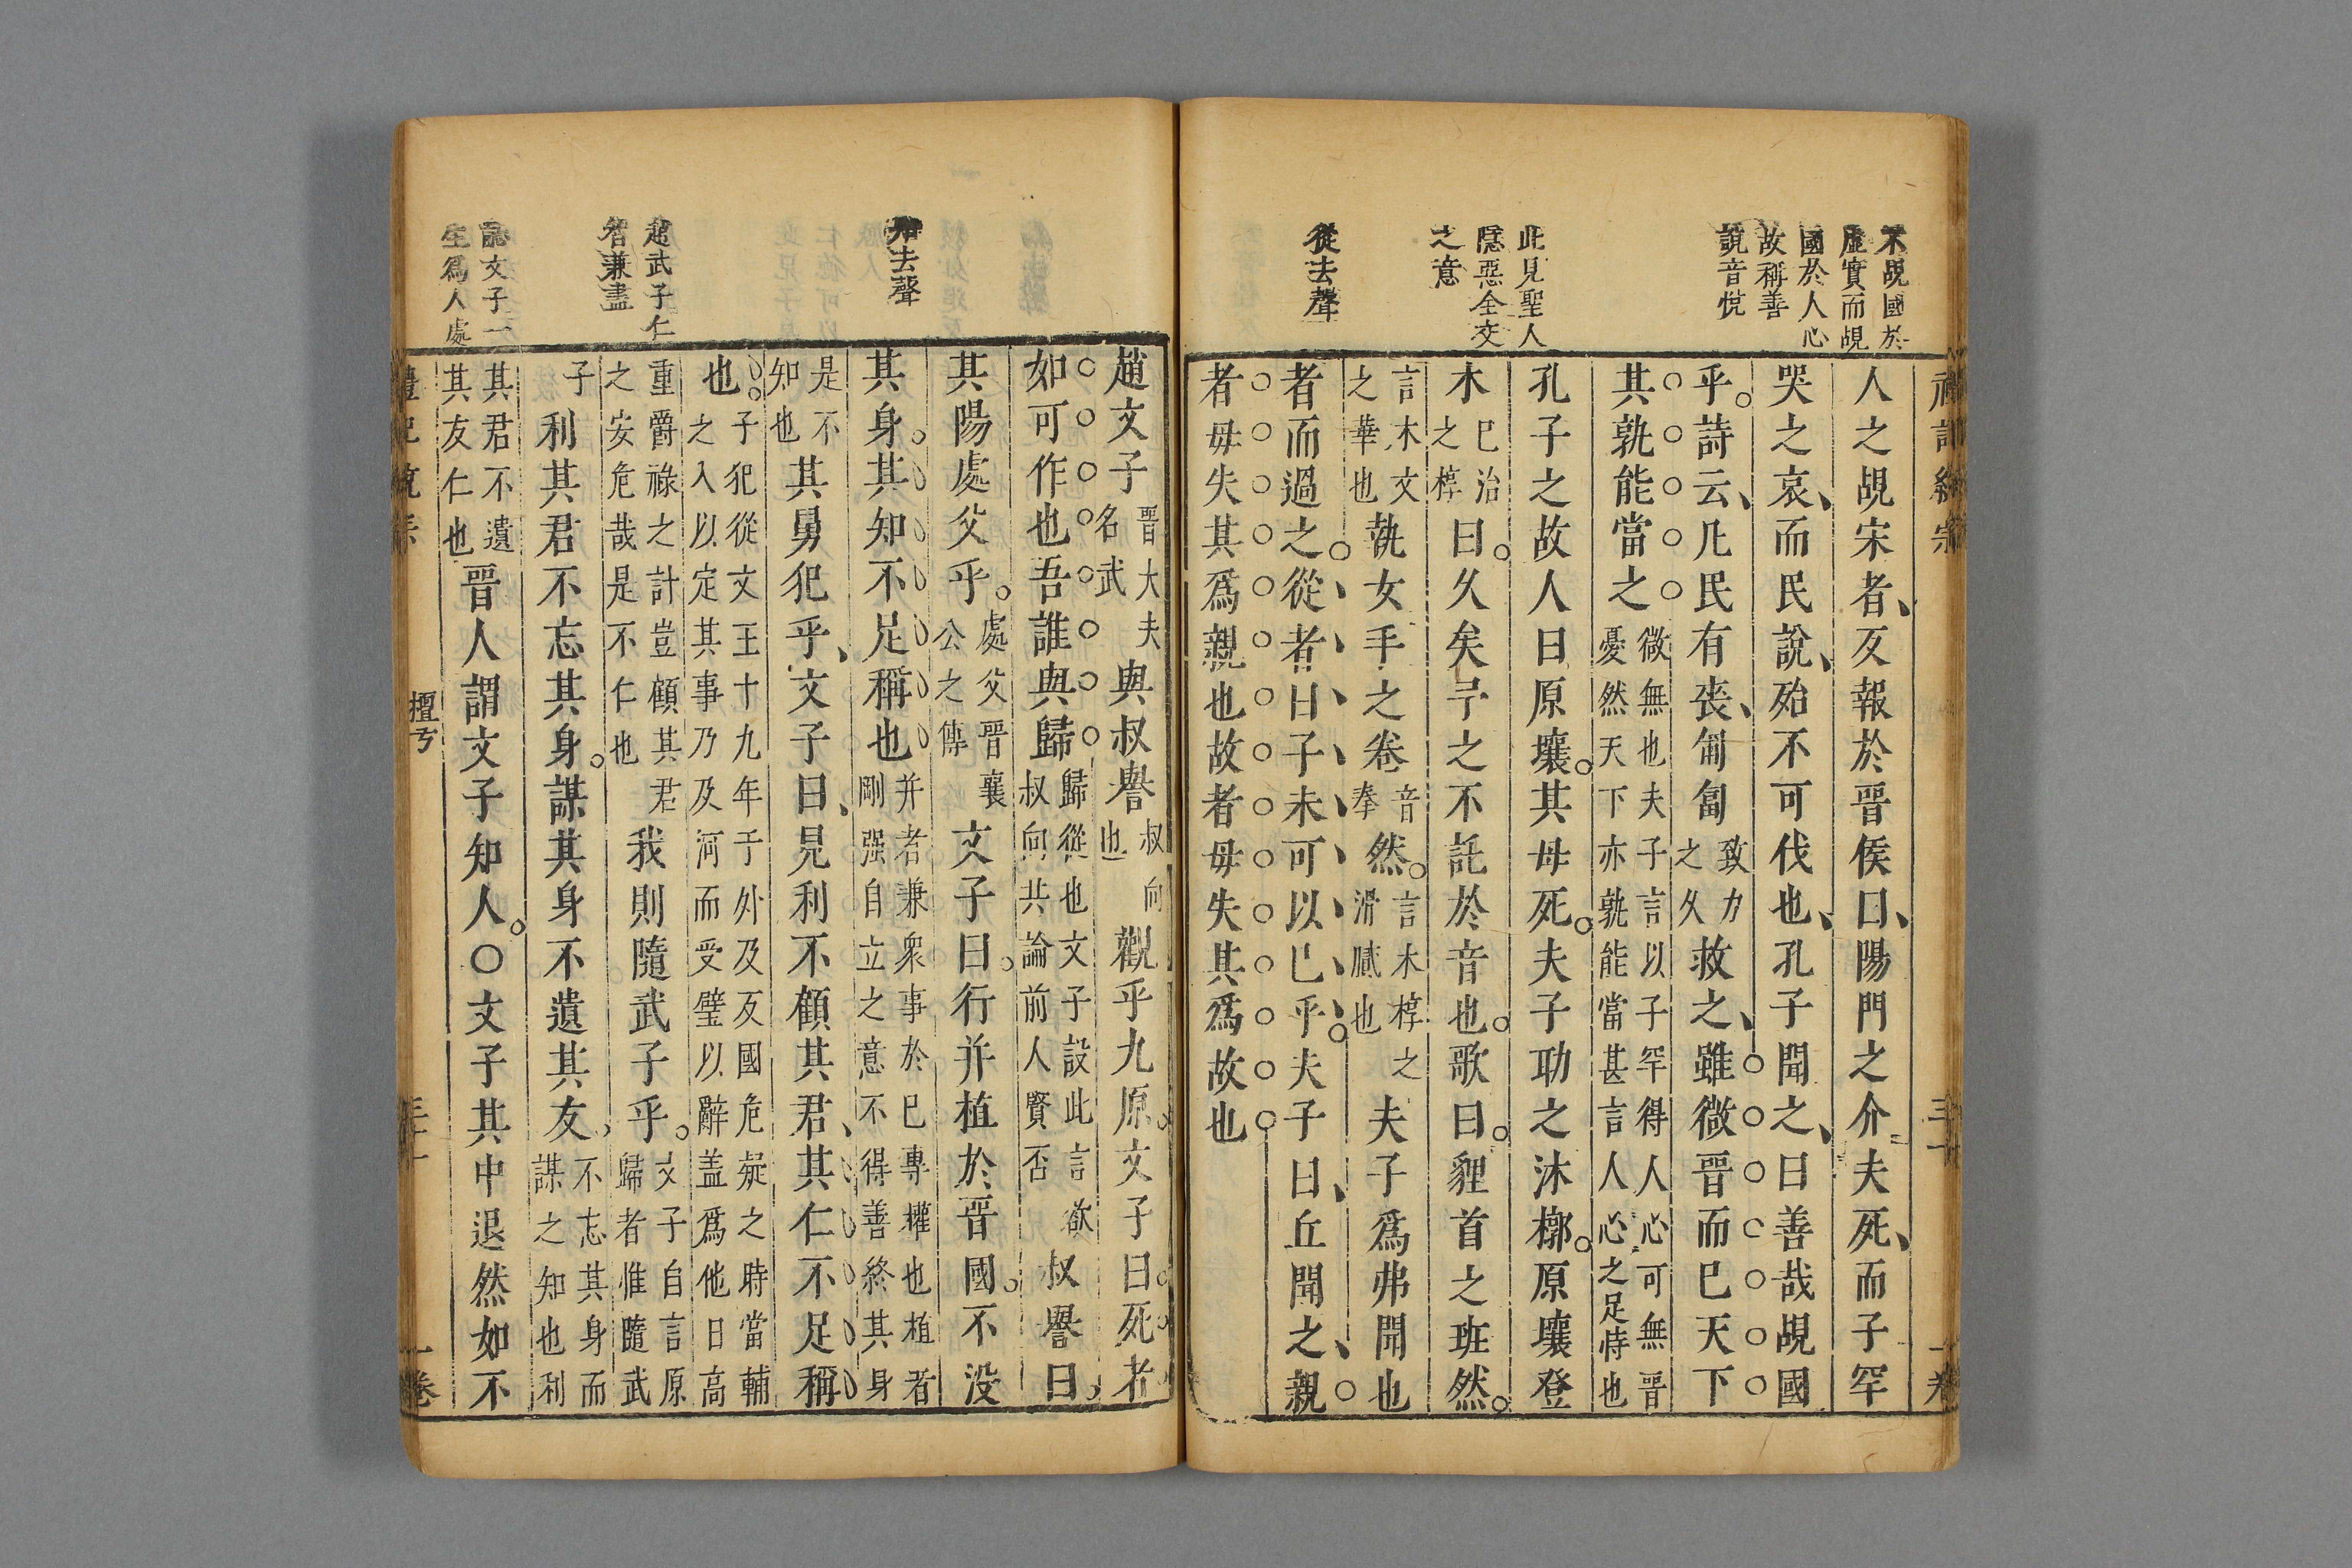 不覘國於
虛實而覘
國於人心
故稱善
說音悅
此見聖人
隱惡全交
之意
從去聲
人之覘宋者反報於晉侯曰陽門之介夫死而子罕
哭之哀而民說殆不可伐也孔子聞之曰善哉覘國
乎詩云凡民有喪匍匐致力之久救之雖微晉而已天下
其孰能當之微無也夫子言以子罕得人心可無晉憂然天下亦孰能當甚言人心之足恃也
孔子之故人曰原壤其母死夫子助之沐槨原壤登
木已治之椁曰久矣予之不託於音也歌曰貍首之班然
言木文之華也執女手之卷音拳然言木椁之滑膩也夫子爲弗聞也
者而過之從者曰子未可以已乎夫子曰丘聞之親
者毋失其爲親也故者毋失其爲故也
三十一
知去聲
趙武子仁
智兼盡
論文子一
生爲人處
趙文子晉大夫名武與叔譽叔向也觀乎九原文子曰死者
如可作也吾誰與歸歸從也文子設此言欲叔向共論前人賢否叔譽曰
其陽處父乎處父晉襄公之傅文子曰行并植於晉國不没
其身其知不足稱也并者兼衆事於已專權也植者剛强自立之意不得善終其身
是不知也其舅犯乎文子曰見利不顧其君其仁不足稱
也子犯從文王十九年于外及反國危疑之時當輔之入以定其事乃及河而受璧以辭盖爲他日高
重爵祿之計豈顧其君之安危哉是不仁也我則隨武子乎文子自言原歸者惟隨武
子利其君不忘其身謀其身不遺其友不忘其身而謀之知也利
其君不遺其友仁也晉人謂文子知人○文子其中退然如不
檀弓
一卷